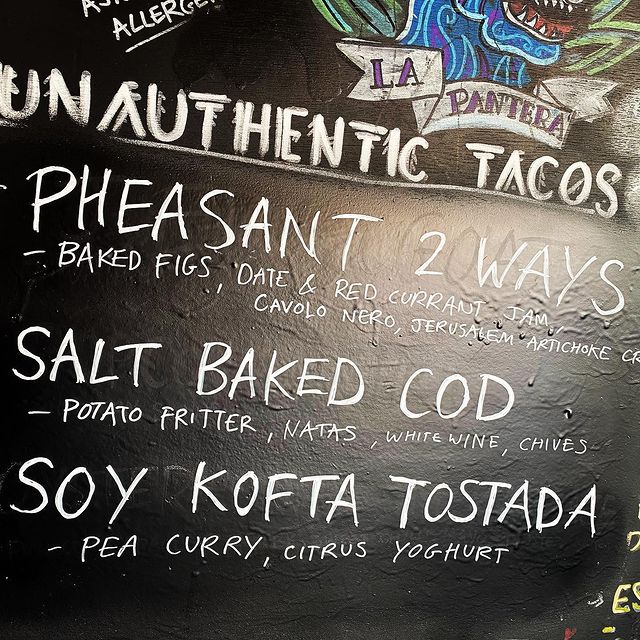 LA
PANTERA
UNAUTHENTIC TACOS
PHEASANT 2 WAYS
- BAKED FIGS, DATE & RED CURRANT JAM,
CAVOLO NERO, JERUSALEM ARTICHOKE
SALT BAKED COD
- POTATO FRITTER, NATAS, WHITE WINE, CHIVES
SOY KOFTA TOSTADA
- PEA CURRY, CITRUS YOGHURT